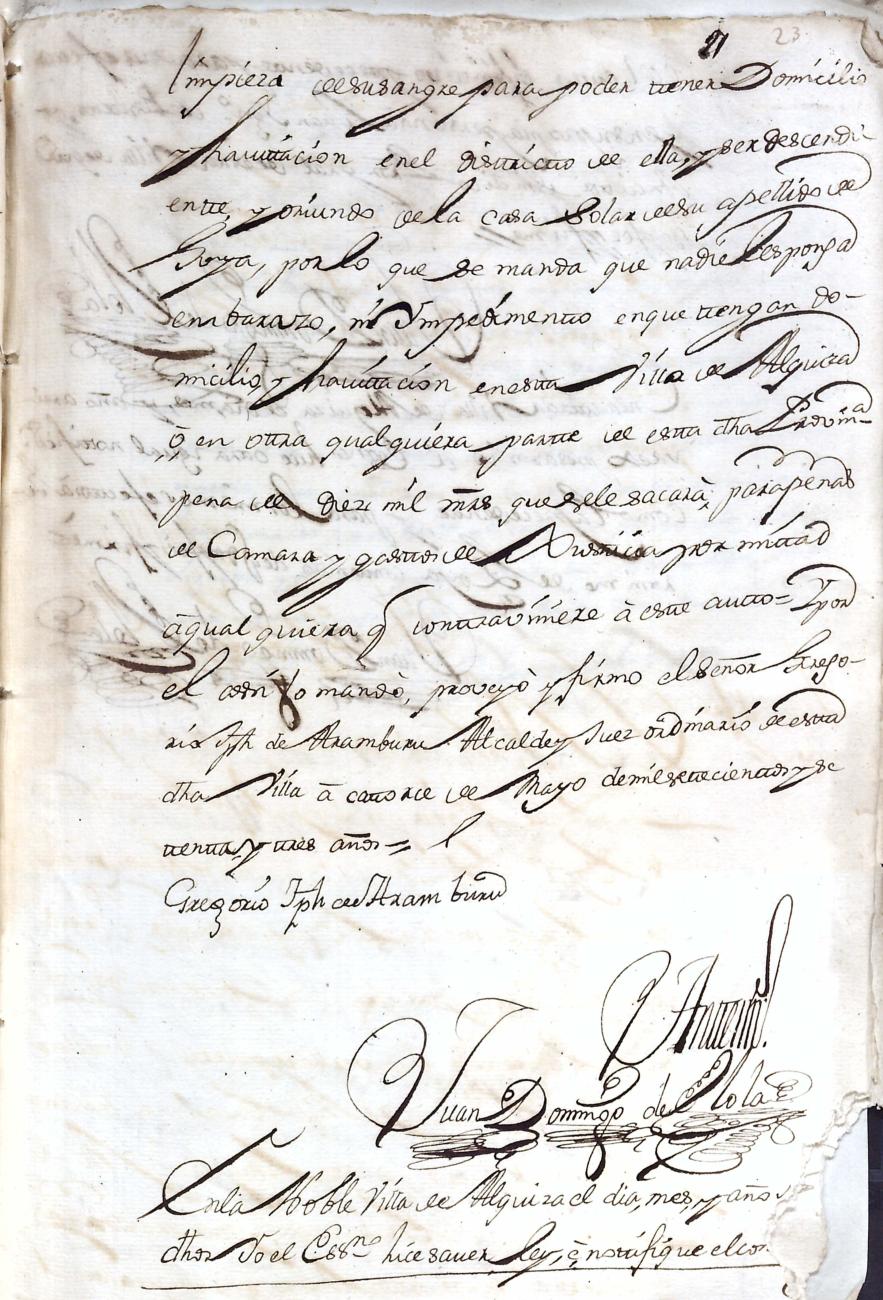 21 23
limpieza de su sangre para poder tener Domicilio
y havitacion en el districto de ella, y ser descendi-
ente, y oriundo de la casa Solar de su apellido de
Goya, por lo que se manda que nadie les ponga
embarazo, ni Ympedimento en que tengan do-
micilio, y havitacion en esta Villa de Alquiza
ò, en otra qualquiera parte de esta dha Provin.a
pena de diez mil mrs que se le sacarà; para penas
de Camara y gastos de Justicia por mittad
à qual quiera q contraviniere à este autto= Y por
el asi lo mandò, proveyò y firmo el señor Grego-
rio Jph de Aramburu Alcalde y Juez ordinario de esta
dha Villa à catorce de Mayo de mil settecientos y se
tenta, y tres años=
Gregorio Jph de Aramburu
Antemi
Juan Domingo de Olola
En la Noble Villa de Alquiza el dia, mes, y año
dhos Yo el Essno hice saver, ley, è notifique el con